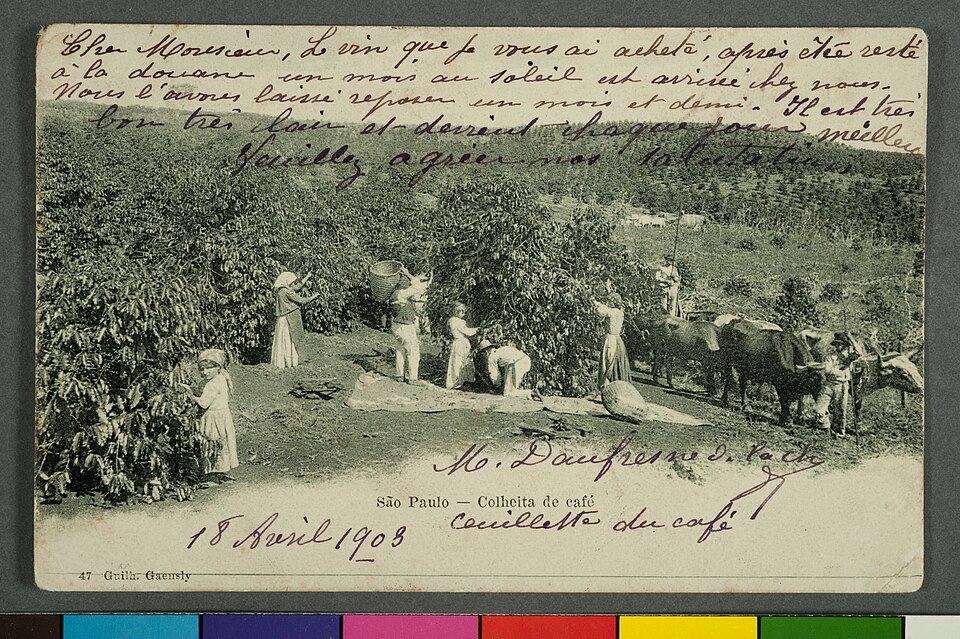 Cher Monsieur, Le vin que je vous ai acheté, après être resté
à la douane un mois au soleil est arrivé chez nous.
Nous l'avons laissé reposer un mois et demi. Il est très
bon très clair et devient chaque jour meilleur
Veuillez agréer nos salutations
M. Daufresne d. la ch
São Paulo — Colheita de café
18 Avril 1903 Ceuillette du café
47 Guilh. Gaensly